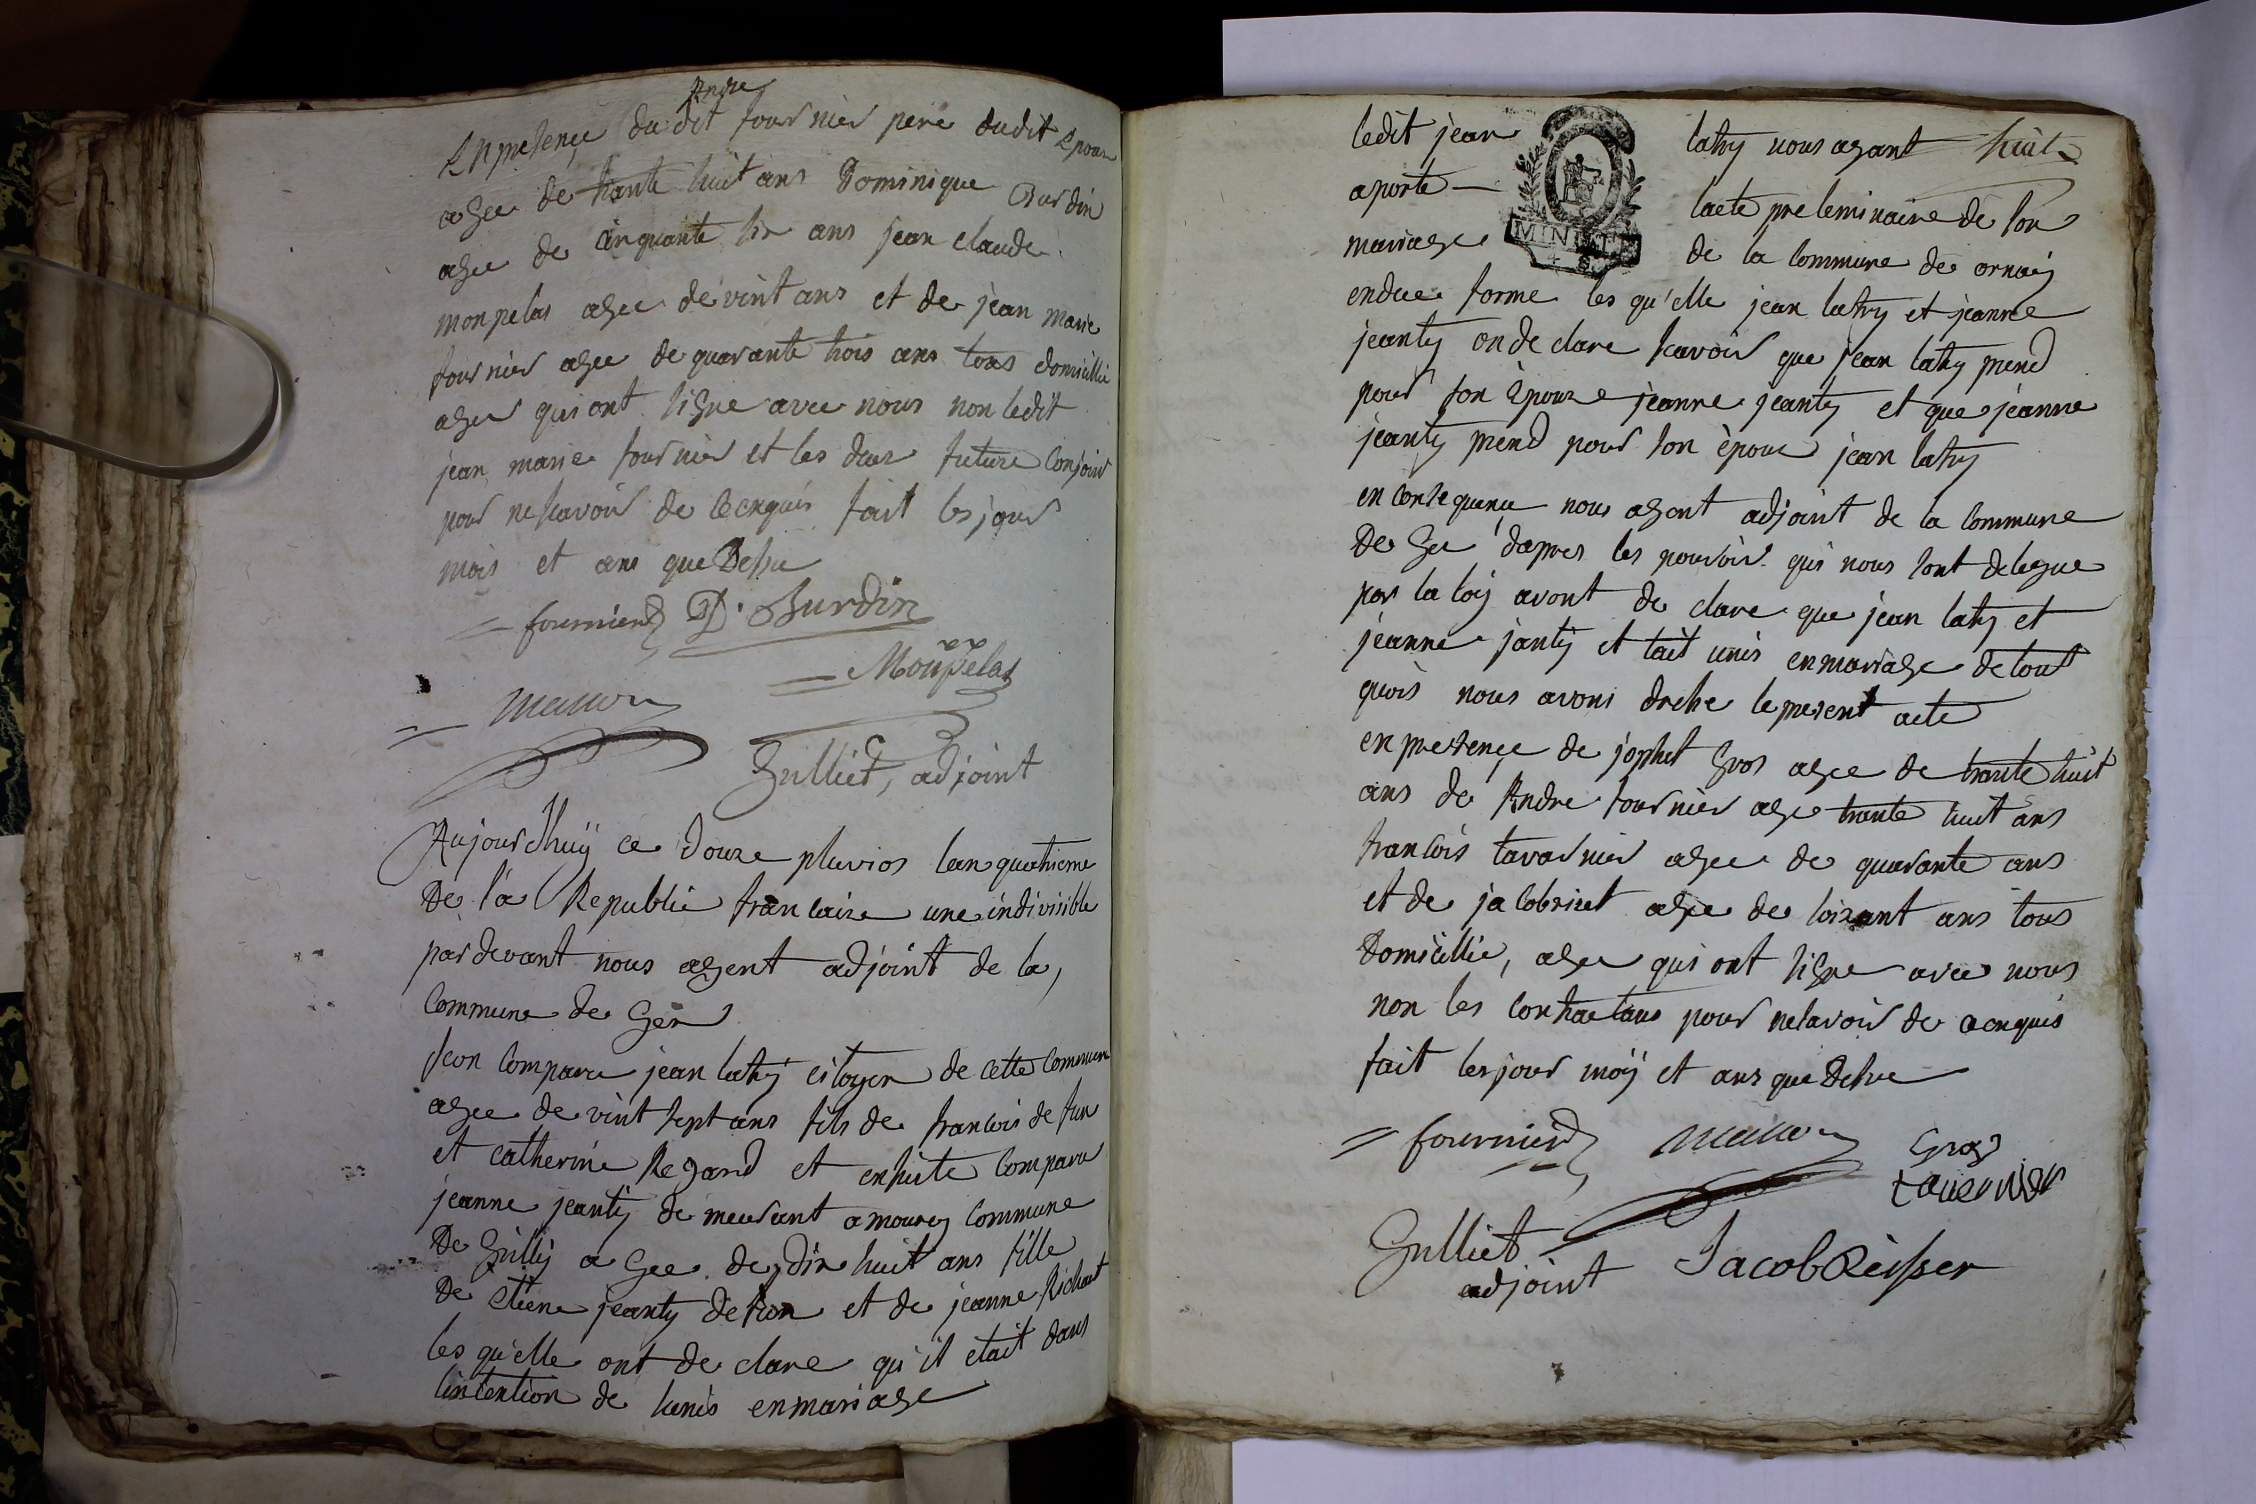 Andre
En presençe du dit fournier pere dudit Epoux
agee de trante huit ans Dominique Burdin
agee de cinquante six ans jean claude
monpelas agee de vint ans et de jean marie
fournier agee de quarante trois ans tous domicillie
agee qui ont signe avec nous non ledit
jean marie fournier et les deux future Conjoint
pour ne scavoir de ce enquis fait les jour
mois et ans que Dessu
fournier D. Burdin
Monpelas
Gulliet, adjoint
Aujourdhuÿ ce douze pluvios lan quatrieme
De la Republie francaise une indivisible
par devant nous agent adjoint de la,
Commune de Gex
Son comparu jean latry citoyen de cette Commune
agee de vint sept ans fils de francois defun
et catherine Regard et ensuite Comparu
jeanne jeanty de meurant a mourey Commune
De Grilly a Gee de dix huit ans fille
De Etiene jeanty defun et de jeanne Richart
les qu'elle ont de clare qu'il etait dans
lintention de sunis en mariage
ledit jean latry nous ayant
aporte lacte preleminaire de son
MINUTE
mariage de la Commune de ornaij
en due forme les qu'elle jean latry et jeanne
jeanty on de clare scavoir que jean latry prend
pour son Epouze jeanne jeanty et que jeanne
jeanty prend pour son époux jean latry
en consequence nous agent adjoint de la Commune
De Gex dapres les pouvoir qui nous sont delegue
par la loy avont de clare que jean latry et
jeanne janty et tait unis en mariage de tout
quois nous avons dresse le present acte
en presençe de josphet Gros agee de trante huit
ans de Andre fournier age trante huit ans
francois tavarnier agee de quarante ans
et de jacobriset agee de soixant ans tous
Domicillie, agee qui ont signe avec nous
non les contractans pour ne savoir de ce enquis
fait les jour moÿ et ans que Dessue
fournier Gros
tavernier
Gulliet
adjoint Jacob Reisser